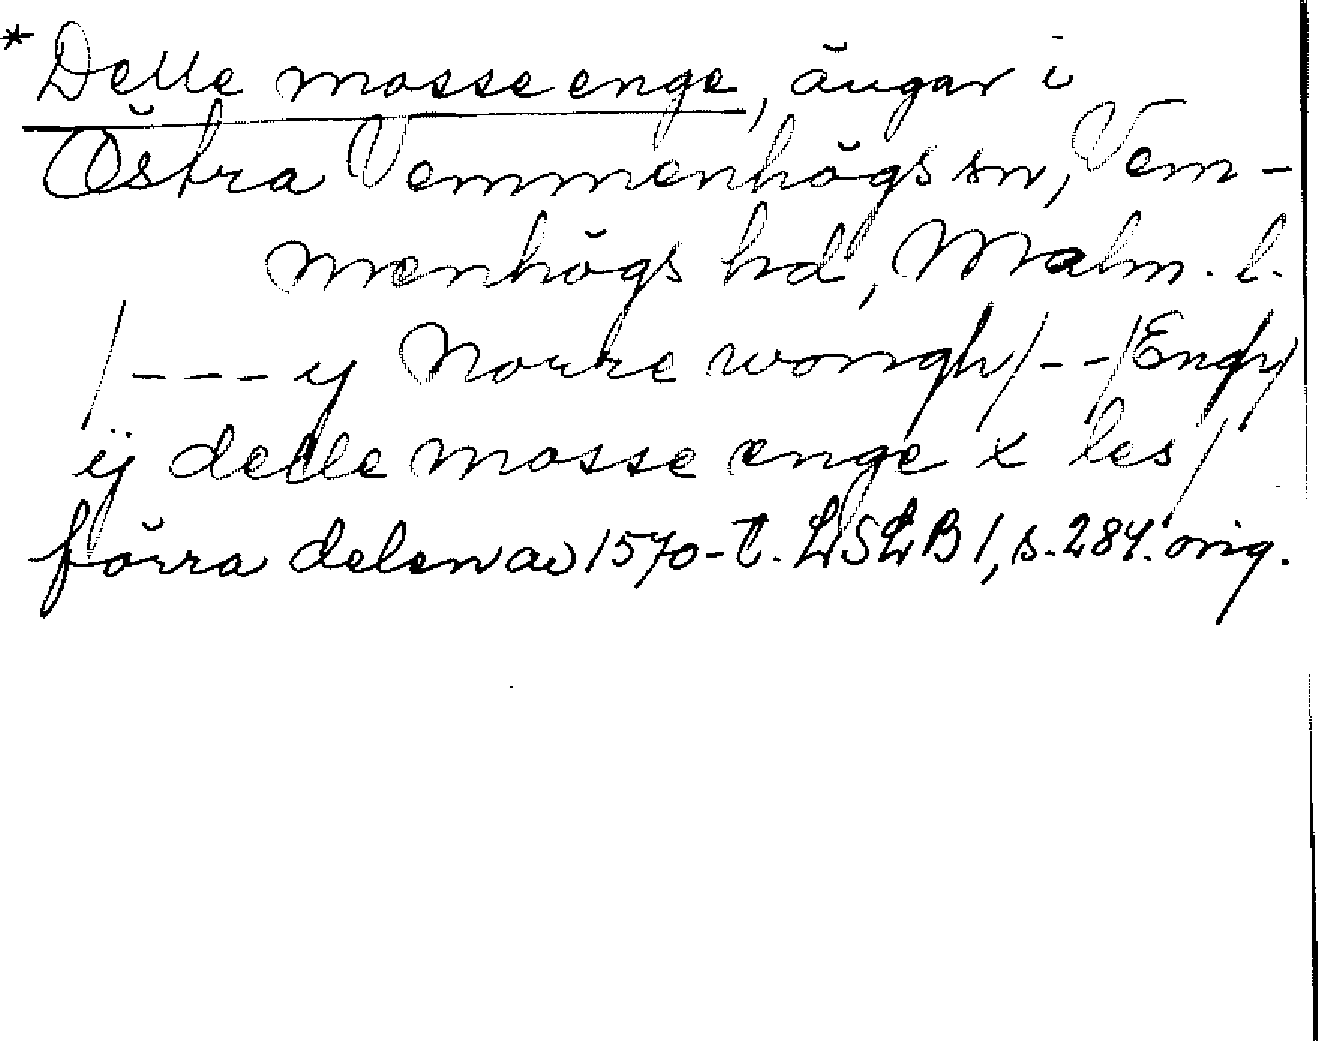 * Delle mosse enge, ängar i
Östra Vemmenhögs sn, Vem-
menhögs hd, Malm. l.
/--- y Norre wongh/--/Engh/
ij delle mosse enge x les/
förra delen av 1570-t. LSLB 1, s. 284. orig.